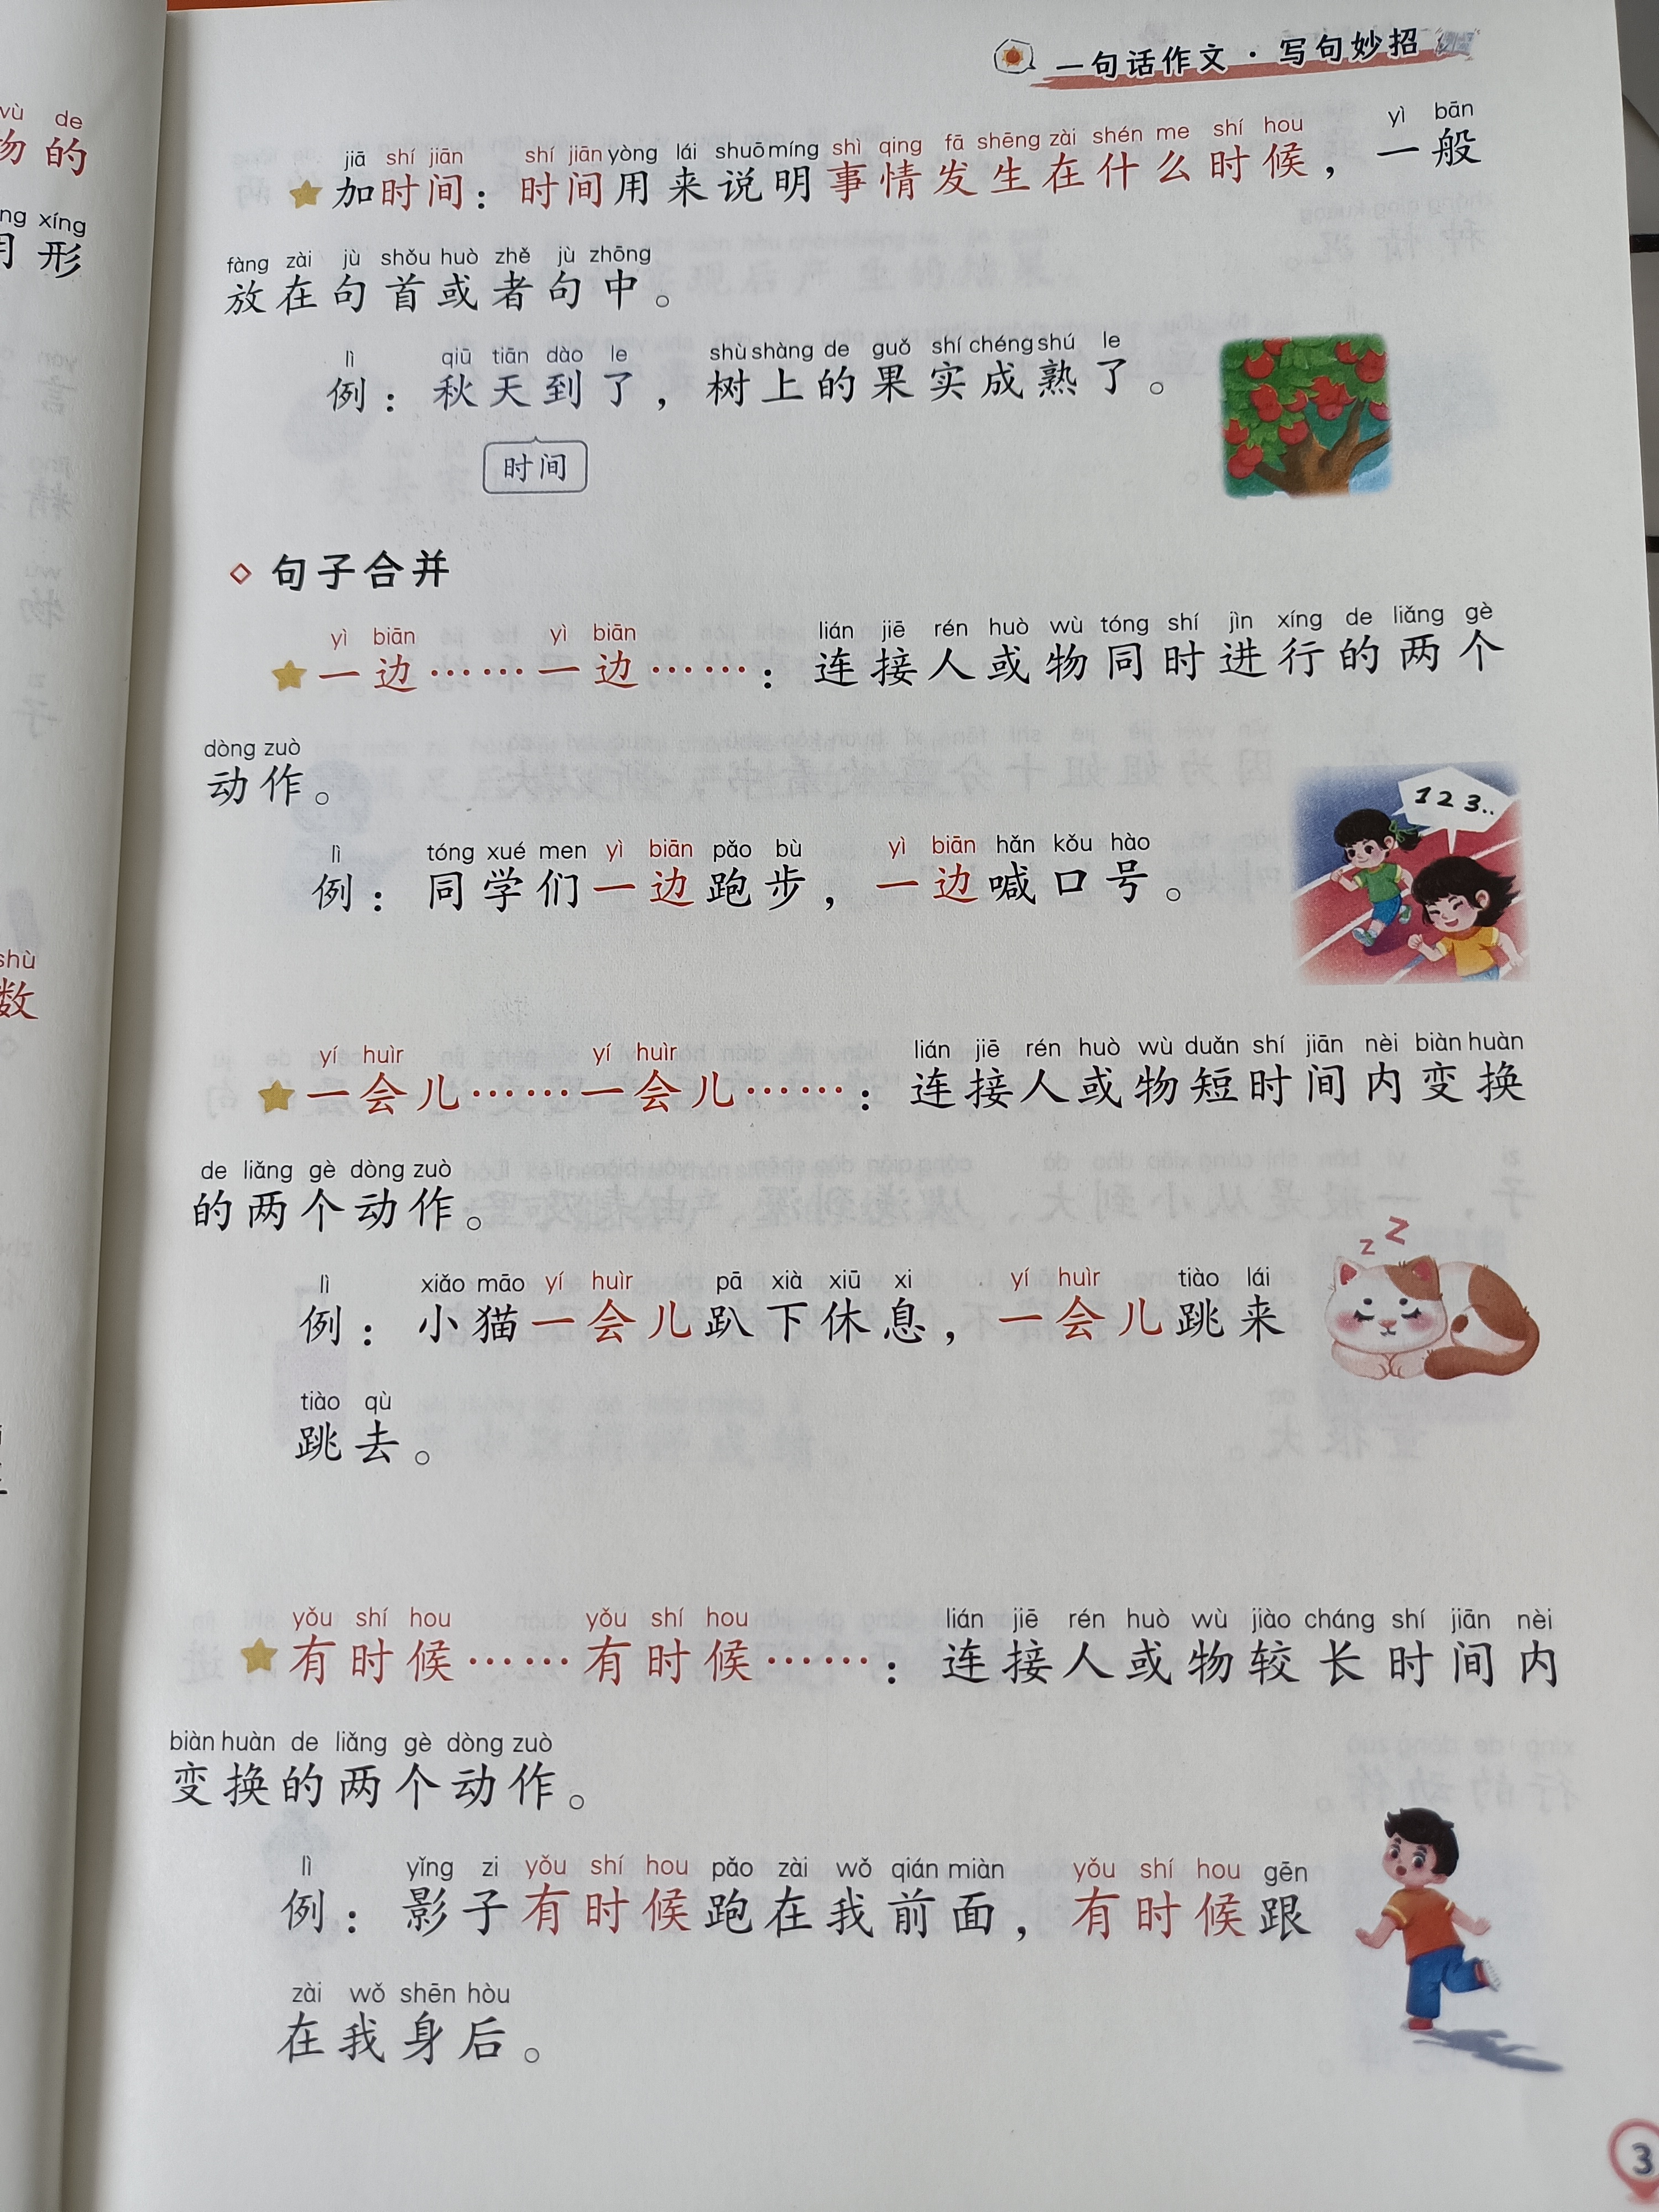 一句话作文·写句妙招
jiā shí jiān shí jiān yòng lái shuō míng shì qing fā shēng zài shén me shí hou yì bān
加时间：时间用来说明事情发生在什么时候，一般
fàng zài jù shǒu huò zhě jù zhōng
放在句首或者句中。
lì qiū tiān dào le shù shàng de guǒ shí chéng shú le
例：秋天到了，树上的果实成熟了。
时间
句子合并
yì biān yì biān lián jiē rén huò wù tóng shí jìn xíng de liǎng gè
一边……一边……：连接人或物同时进行的两个
dòng zuò
动作。
1 2 3..
lì tóng xué men yì biān pǎo bù yì biān hǎn kǒu hào
例：同学们一边跑步，一边喊口号。
yí huìr yí huìr lián jiē rén huò wù duǎn shí jiān nèi biàn huàn
一会儿……一会儿……：连接人或物短时间内变换
de liǎng gè dòng zuò
的两个动作。
z Z
lì xiǎo māo yí huìr pā xià xiū xi yí huìr tiào lái
例：小猫一会儿趴下休息，一会儿跳来
tiào qù
跳去。
yǒu shí hou yǒu shí hou lián jiē rén huò wù jiào cháng shí jiān nèi
有时候……有时候……：连接人或物较长时间内
biàn huàn de liǎng gè dòng zuò
变换的两个动作。
lì yǐng zi yǒu shí hou pǎo zài wǒ qián miàn yǒu shí hou gēn
例：影子有时候跑在我前面，有时候跟
zài wǒ shēn hòu
在我身后。
3
vù de
物的
ng xíng
形
shù
数